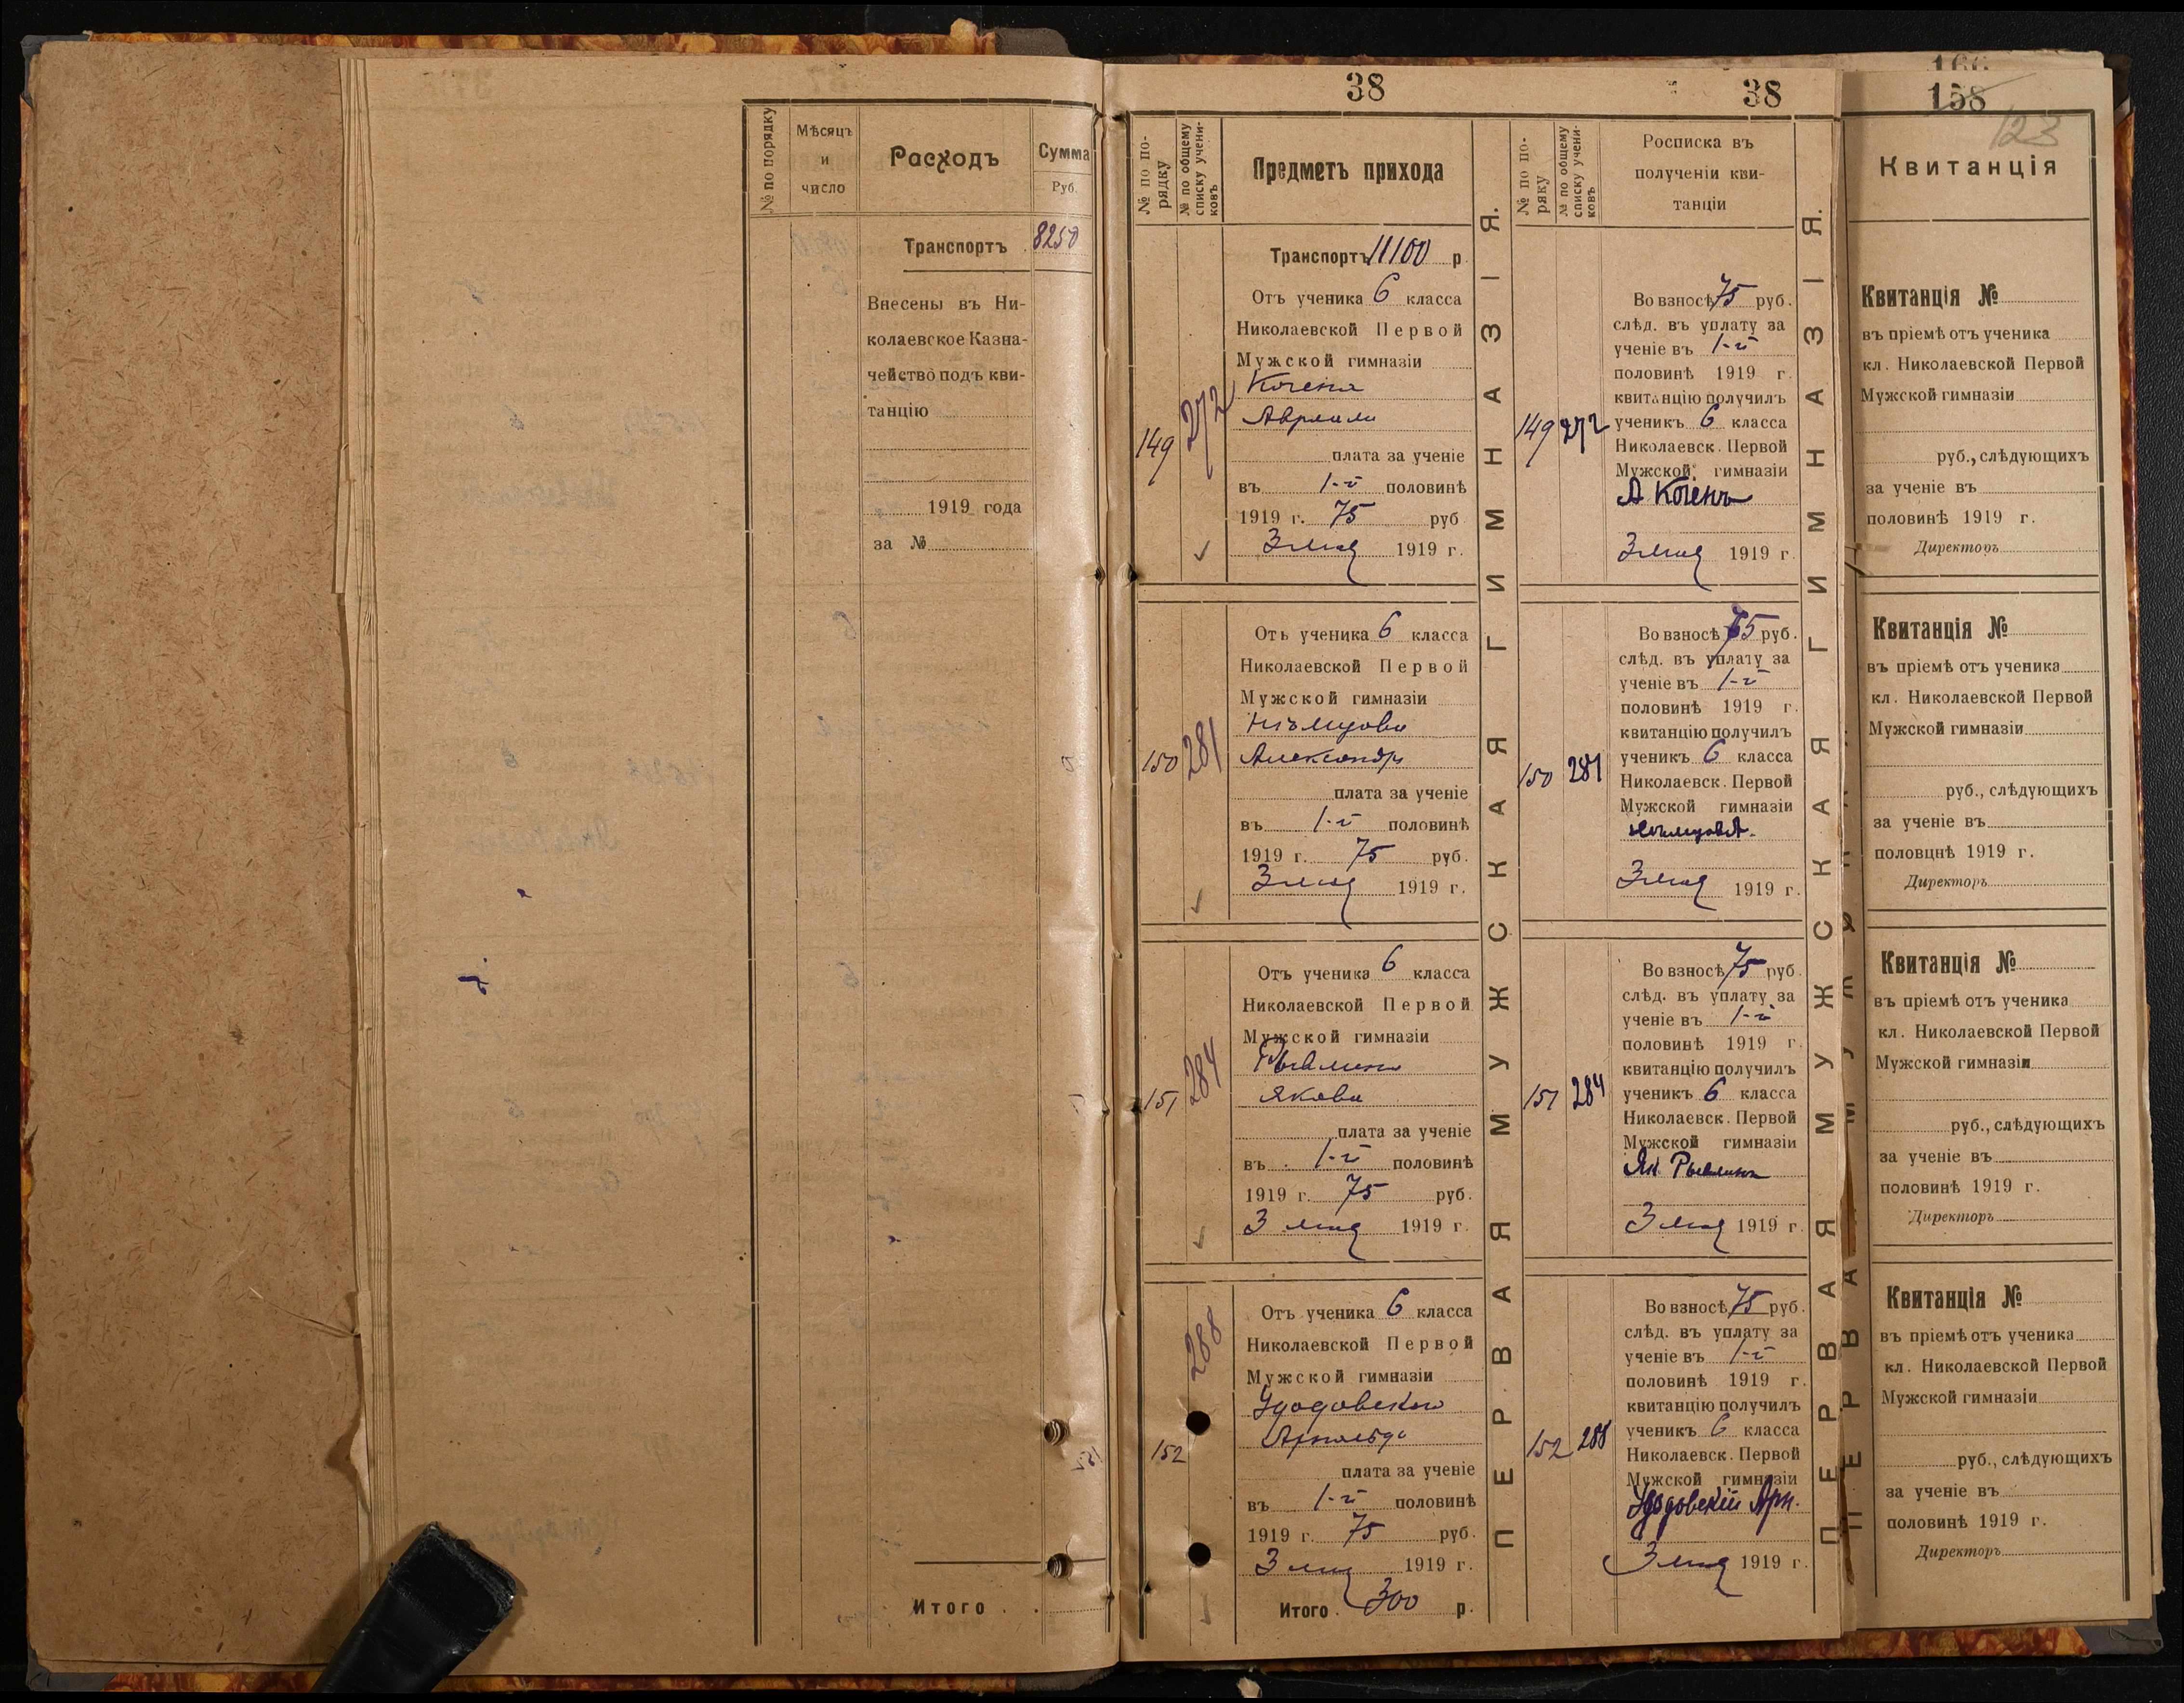 № по порядку
Мѣсяцъ
и
число
Расходъ
Сумма
Руб.
Транспортъ 8250
Внесены въ Ни-
колаевское Казна-
чейство подъ кви-
танцію
1919 года
за №
Итого
38
№ по по-
рядку
№ по общему
списку учени-
ковъ
Предметъ прихода
Транспортъ 11100 р.
149
272
Отъ ученика 6 класса
Николаевской Первой
Мужской гимназіи
Когена
плата за ученіе
въ 1-й половинѣ
1919 г. 75 руб
3 мая 1919 г.
150
281
Отъ ученика 6 класса
Николаевской Первой
Мужской гимназіи
Нѣмцова
Александра
плата за ученіе
въ 1-й половинѣ
1919 г. 75 руб.
3 мая 1919 г.
151
284
Отъ ученика 6 класса
Николаевской Первой
Мужской гимназіи
Рывлина
Якова
плата за ученіе
въ 1-й половинѣ
1919 г. 75 руб.
3 мая 1919 г.
152
288
Отъ ученика 6 класса
Николаевской Первой
Мужской гимназіи
Удодовскаго
Арнольда
плата за ученіе
въ 1-й половинѣ
1919 г. 75 руб.
3 мая 1919 г.
Итого 300 р.
ПЕРВАЯ МУЖСКАЯ ГИМНАЗІЯ.
38
№ по по-
ряку
№ по общему
списку учени-
ковъ
Росписка въ
полученіи кви-
танціи
149
272
Во взносѣ 75 руб.
слѣд. въ уплату за
ученіе въ 1-й
половинѣ 1919 г.
квитанцію получилъ
ученикъ 6 класса
Николаевск. Первой
Мужской гимназіи
А Когенъ
3 мая 1919 г.
150
281
Во взносѣ 75 руб.
слѣд. въ уплату за
ученіе въ 1-й
половинѣ 1919 г.
квитанцію получилъ
ученикъ 6 класса
Николаевск. Первой
Мужской гимназіи
Нѣмцовъ А.
3 мая 1919 г.
151
284
Во взносѣ 75 руб.
слѣд. въ уплату за
ученіе въ 1-й
половинѣ 1919 г.
квитанцію получилъ
ученикъ 6 класса
Николаевск. Первой
Мужской гимназіи
Як. Рывлинъ
3 мая 1919 г.
152
288
Во взносѣ 75 руб.
слѣд. въ уплату за
ученіе въ 1-й
половинѣ 1919 г.
квитанцію получилъ
ученикъ 6 класса
Николаевск. Первой
Мужской гимназіи
Удодовскій Арн.
3 мая 1919 г.
ПЕРВАЯ МУЖСКАЯ ГИМНАЗІЯ.
158
123
Квитанція
Квитанція №
въ пріемѣ отъ ученика
кл. Николаевской Первой
Мужской гимназіи
руб., слѣдующихъ
за ученіе въ
половинѣ 1919 г.
Директоръ
Квитанція №
въ пріемѣ отъ ученика
кл. Николаевской Первой
Мужской гимназіи
руб., слѣдующихъ
за ученіе въ
половцнѣ 1919 г.
Директоръ
Квитанція №
въ пріемѣ отъ ученика
кл. Николаевской Первой
Мужской гимназіи
руб., слѣдующихъ
за ученіе въ
половинѣ 1919 г.
Директоръ
Квитанція №
въ пріемѣ отъ ученика
кл. Николаевской Первой
Мужской гимназіи
руб., слѣдующихъ
за ученіе въ
половинѣ 1919 г.
Директоръ